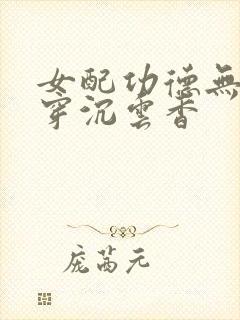 女配功德無
穿沉雲香
庞茜元